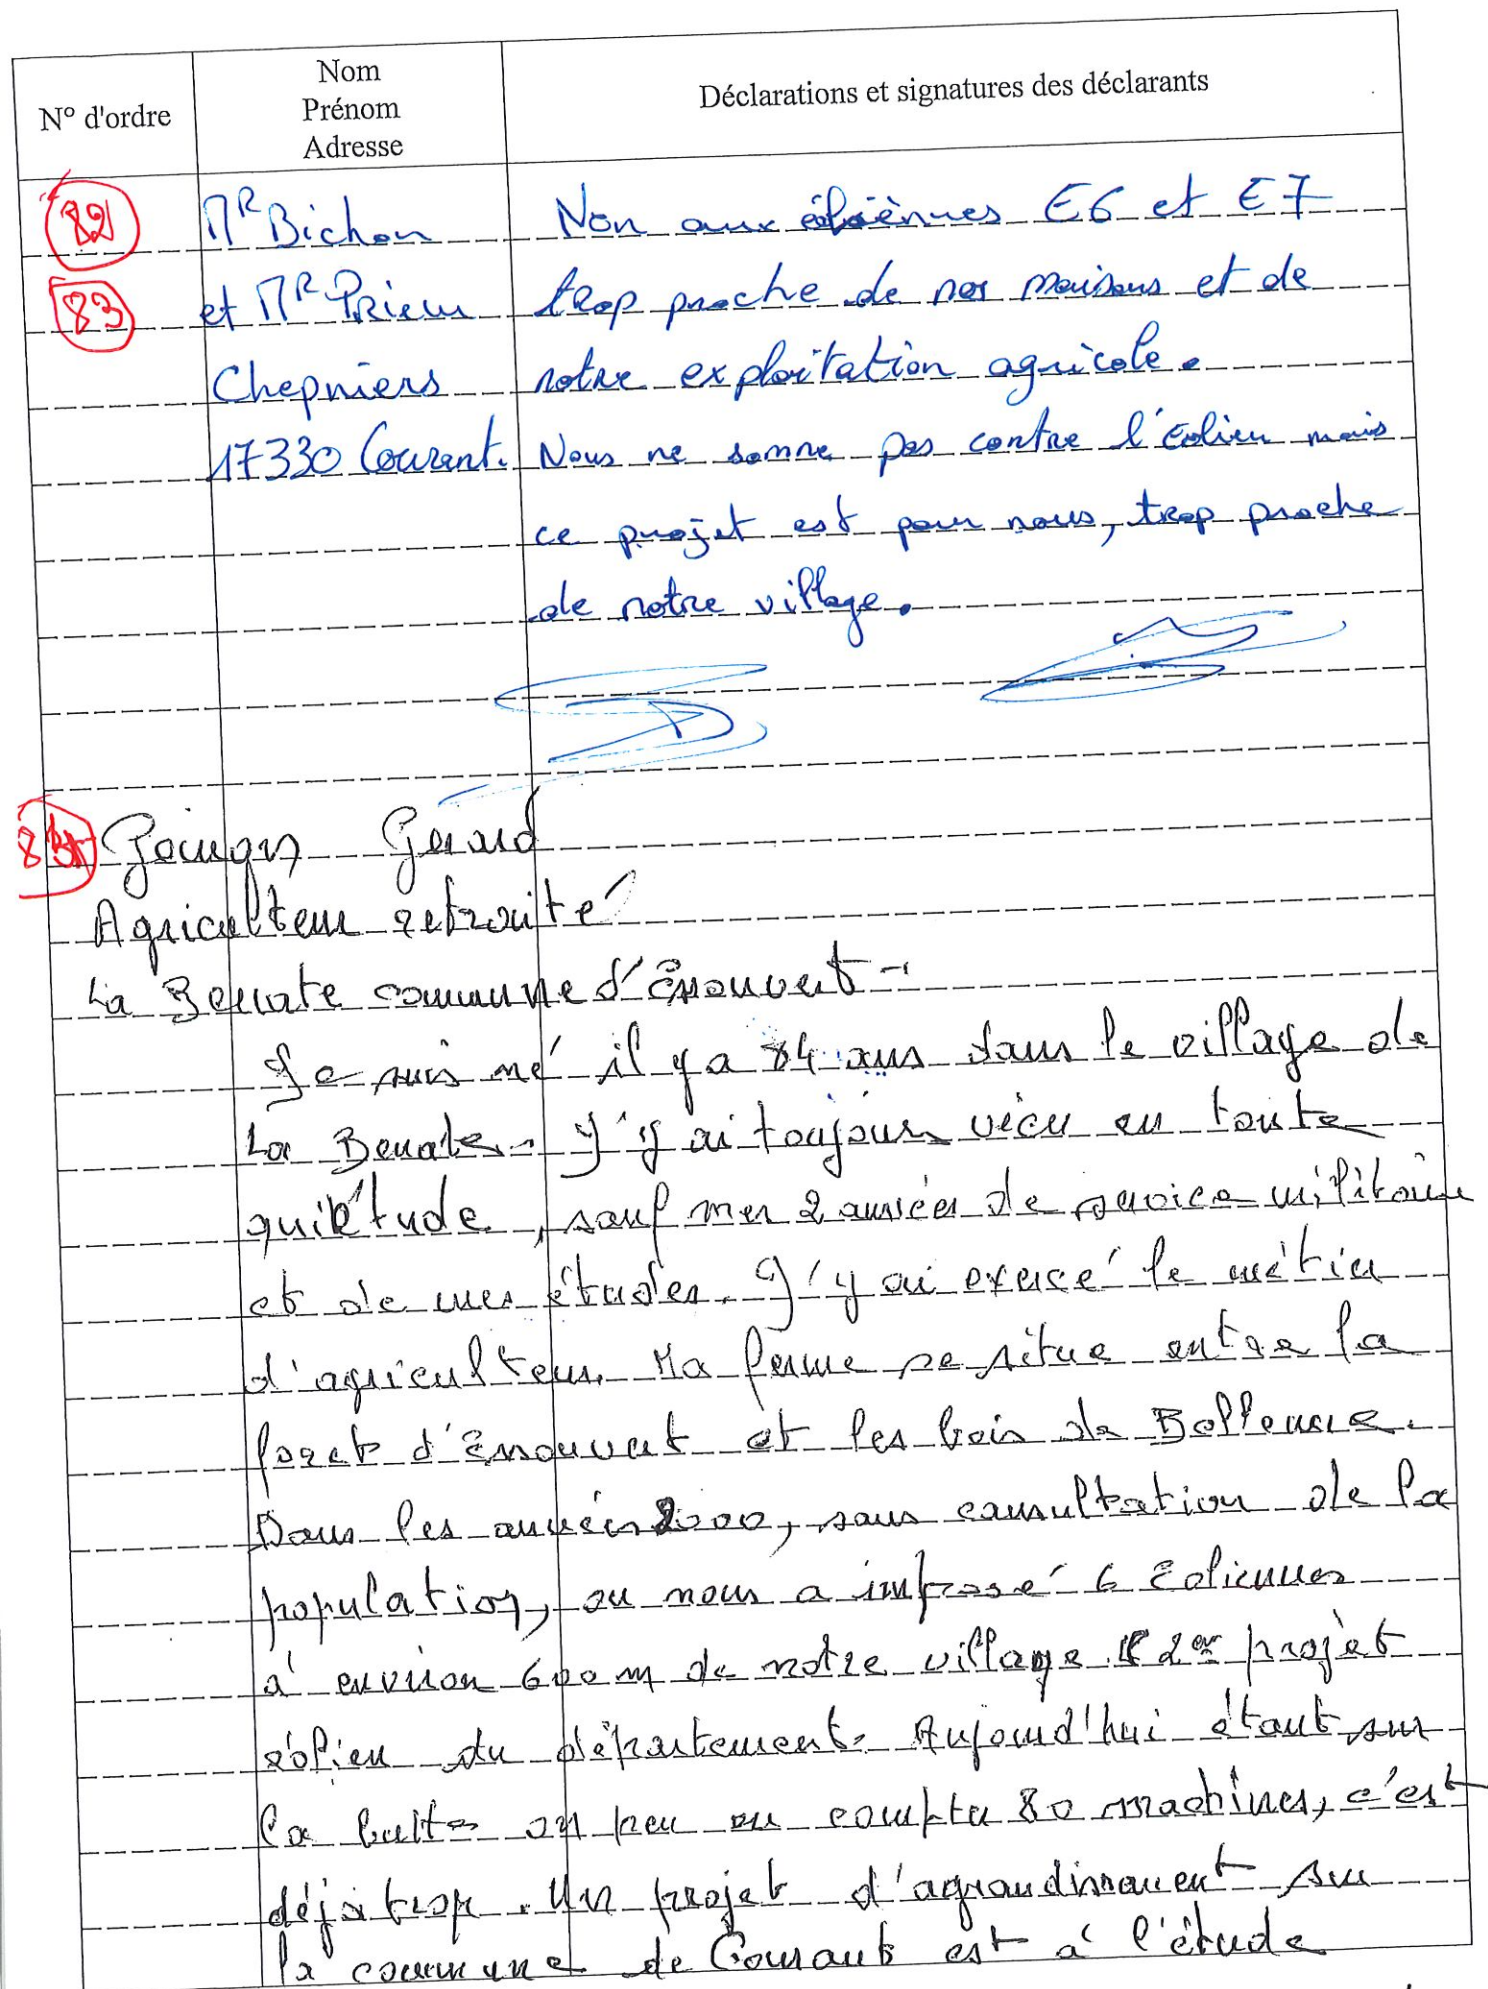 N° d'ordre
Nom
Prénom
Adresse
Déclarations et signatures des déclarants
82 Mr Bichon Non aux éoliènnes E6 et E7
83 et Mr Prieu trop proche de nos maisons et de
Chepniers notre exploitation agricole.
17330 Courant. Nous ne somme pas contre l'éolien mais
ce projet est pour nous, trop proche
de notre village.
Gérard
Agriculteur retraité
La Benate commune d'Essouvert -
Je suis né il y a 84 ans dans le village de
La Benate. J'y ai toujours vécu en toute
quiétude, sauf mes 2 années de service militaire
et de mes études. J'y ai exercé le métier
d'agriculteur. Ma ferme se situe entre la
foret d'Essouvert et les bois de
Dans les années 2000, sans consultation de la
population, on nous a imposé 6 Eoliennes
à environ 600 m de notre village. projet
éolien du département. Aujourd'hui étant sur
la butte on peu en compter 80 machines, c'est
déjà trop. Un projet d'agrandissement sur
la commune de Courant est à l'étude